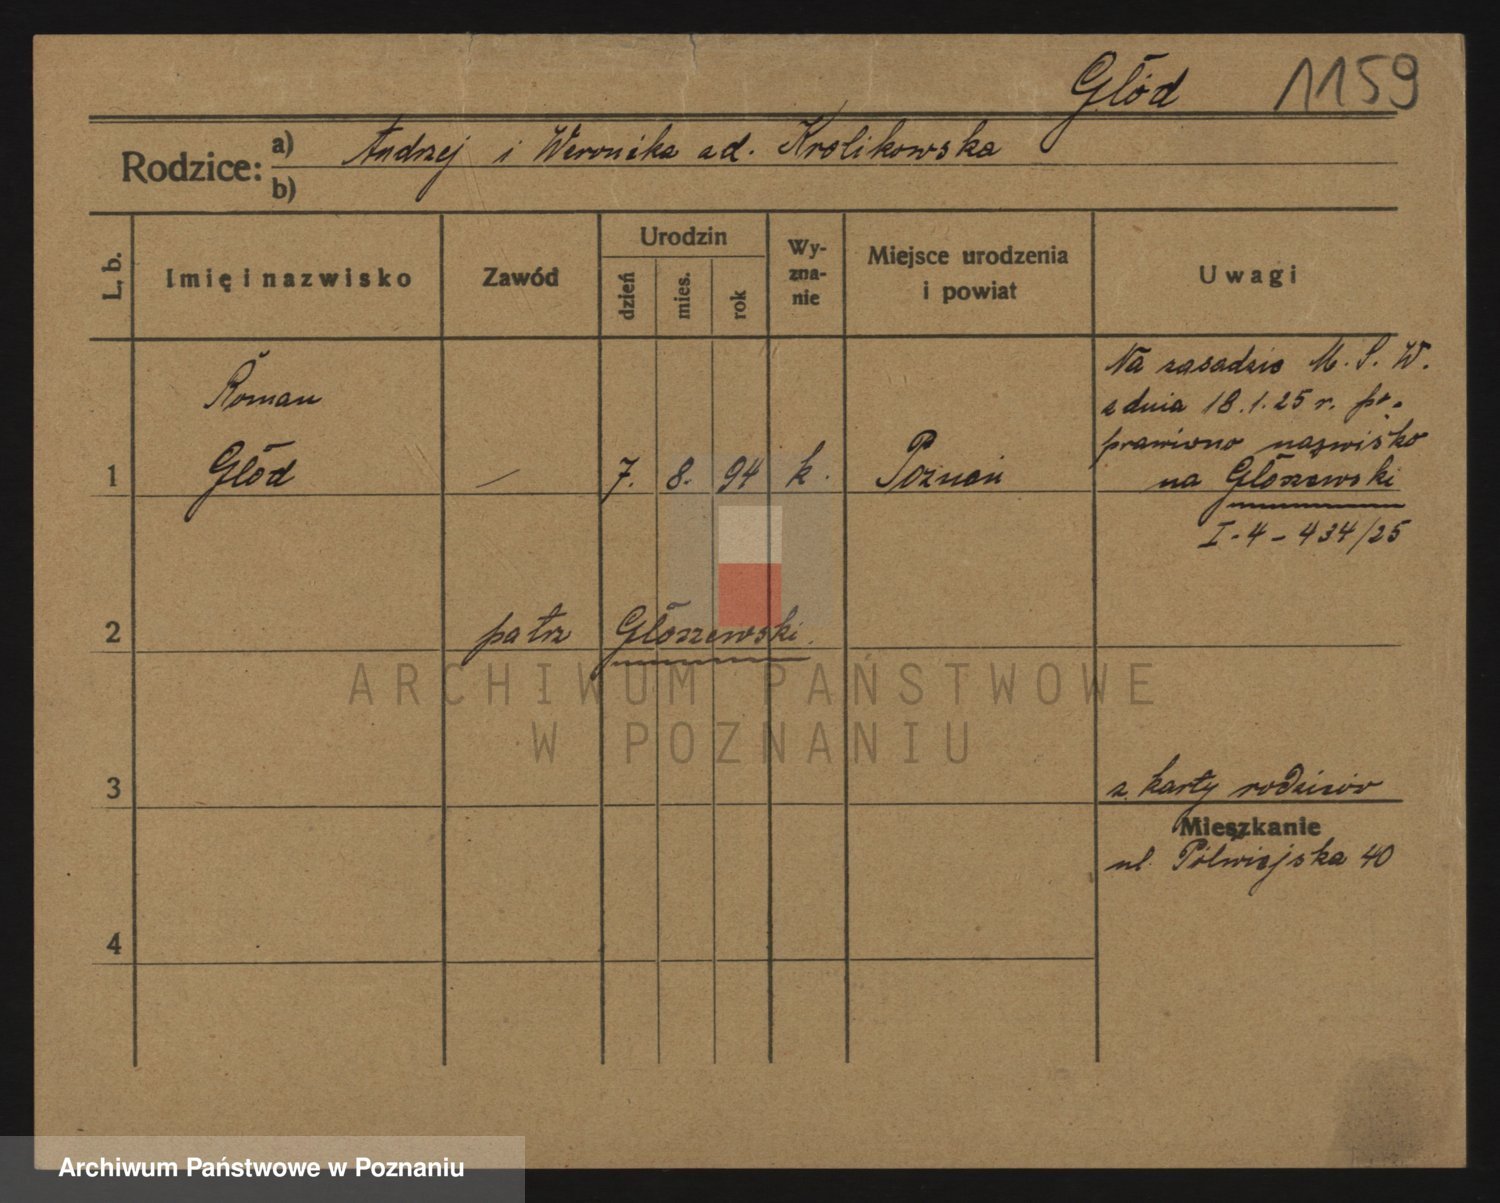 Głód 1159
Rodzice: a) Andrzej i Weronika zd. Krolikowska
b)
L. b. Imię i nazwisko Zawód Urodzin dzień mies. rok Wy-zna-nie Miejsce urodzenia i powiat Uwagi
Roman
1 Głód — 7. 8. 94 k. Poznań
Na zasadzie M. S. W.
z dnia 18.1.25 r. po-
prawiono nazwisko
na Głoszewski
I-4-434/25
2 patrz Głoszewski.
3 z karty rodziców
Mieszkanie
ul. Półwiejska 40
4
ARCHIWUM PAŃSTWOWE
W POZNANIU
Archiwum Państwowe w Poznaniu